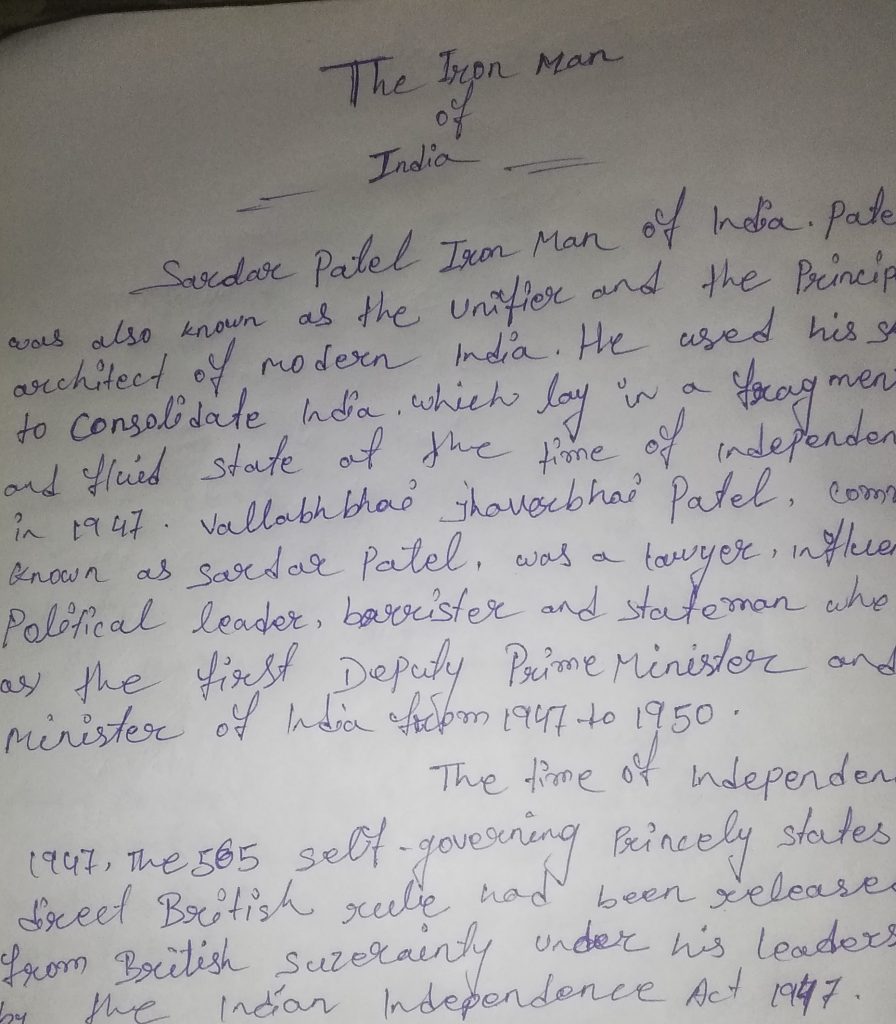 The Iron Man
of
India
Sardar Patel Iron Man of India. Pate
was also known as the Unifier and the Princip
architect of modern India. He used his s
to Consolidate India. which lay in a fragmen
and fluid state at the time of independen
in 1947. Vallabhbhai jhaverbhai Patel, com
known as Sardar Patel, was a lawyer, influen
Political leader, barrister and stateman who
as the first Deputy Prime Minister and
Minister of India from 1947 to 1950.
The time of independen
1947, The 565 self-governing Princely states
direct British rule had been release
from British suzerainty under his leaders
by the Indian Independence Act 1947.